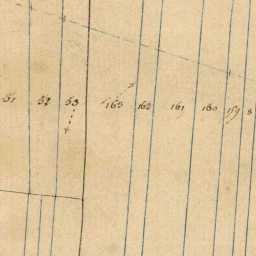 51 52 53 163 162 161 160 159